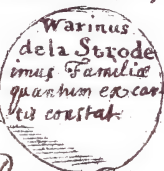 Warinus
de la Strode
imus Familiæ
quantum ex car
tis constat.